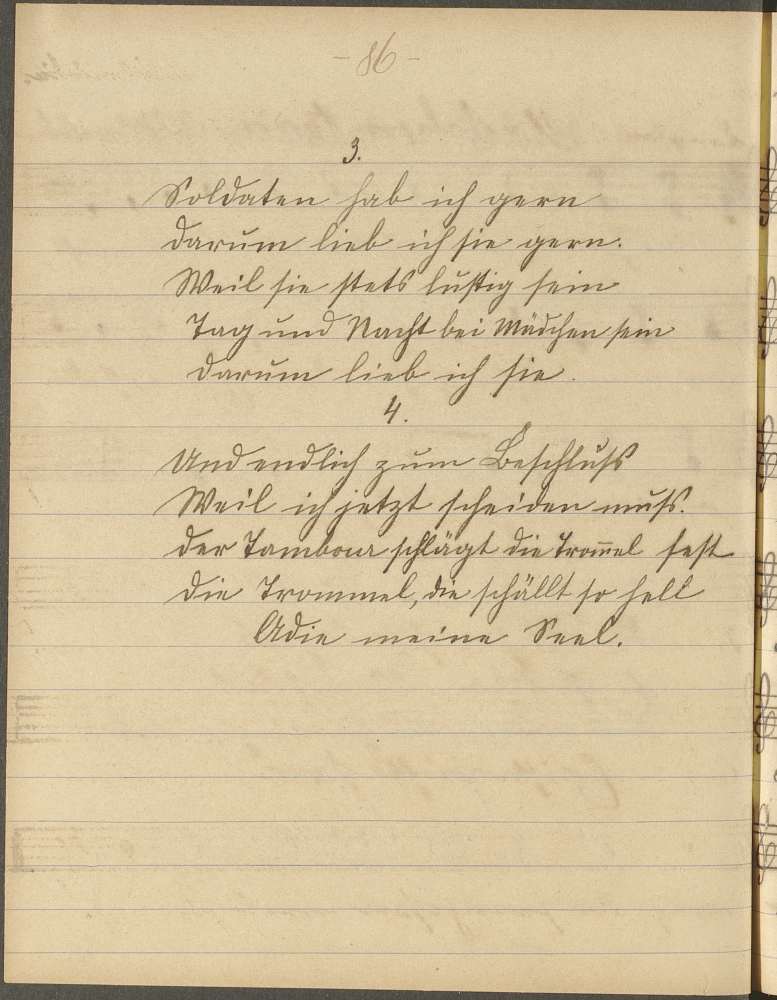 - 86 -
3.
Soldaten hab ich gern
darum lieb ich sie gern.
Weil sie stets lustig sein
Tag und Nacht bei Mädchen sein
darum lieb ich sie.
4.
Und endlich zum Beschluß
Weil ich jetzt scheiden muß.
der Tambour schlägt die Trom̅el fest
die Trommel, die schällt so hell
Adie meine Seel.